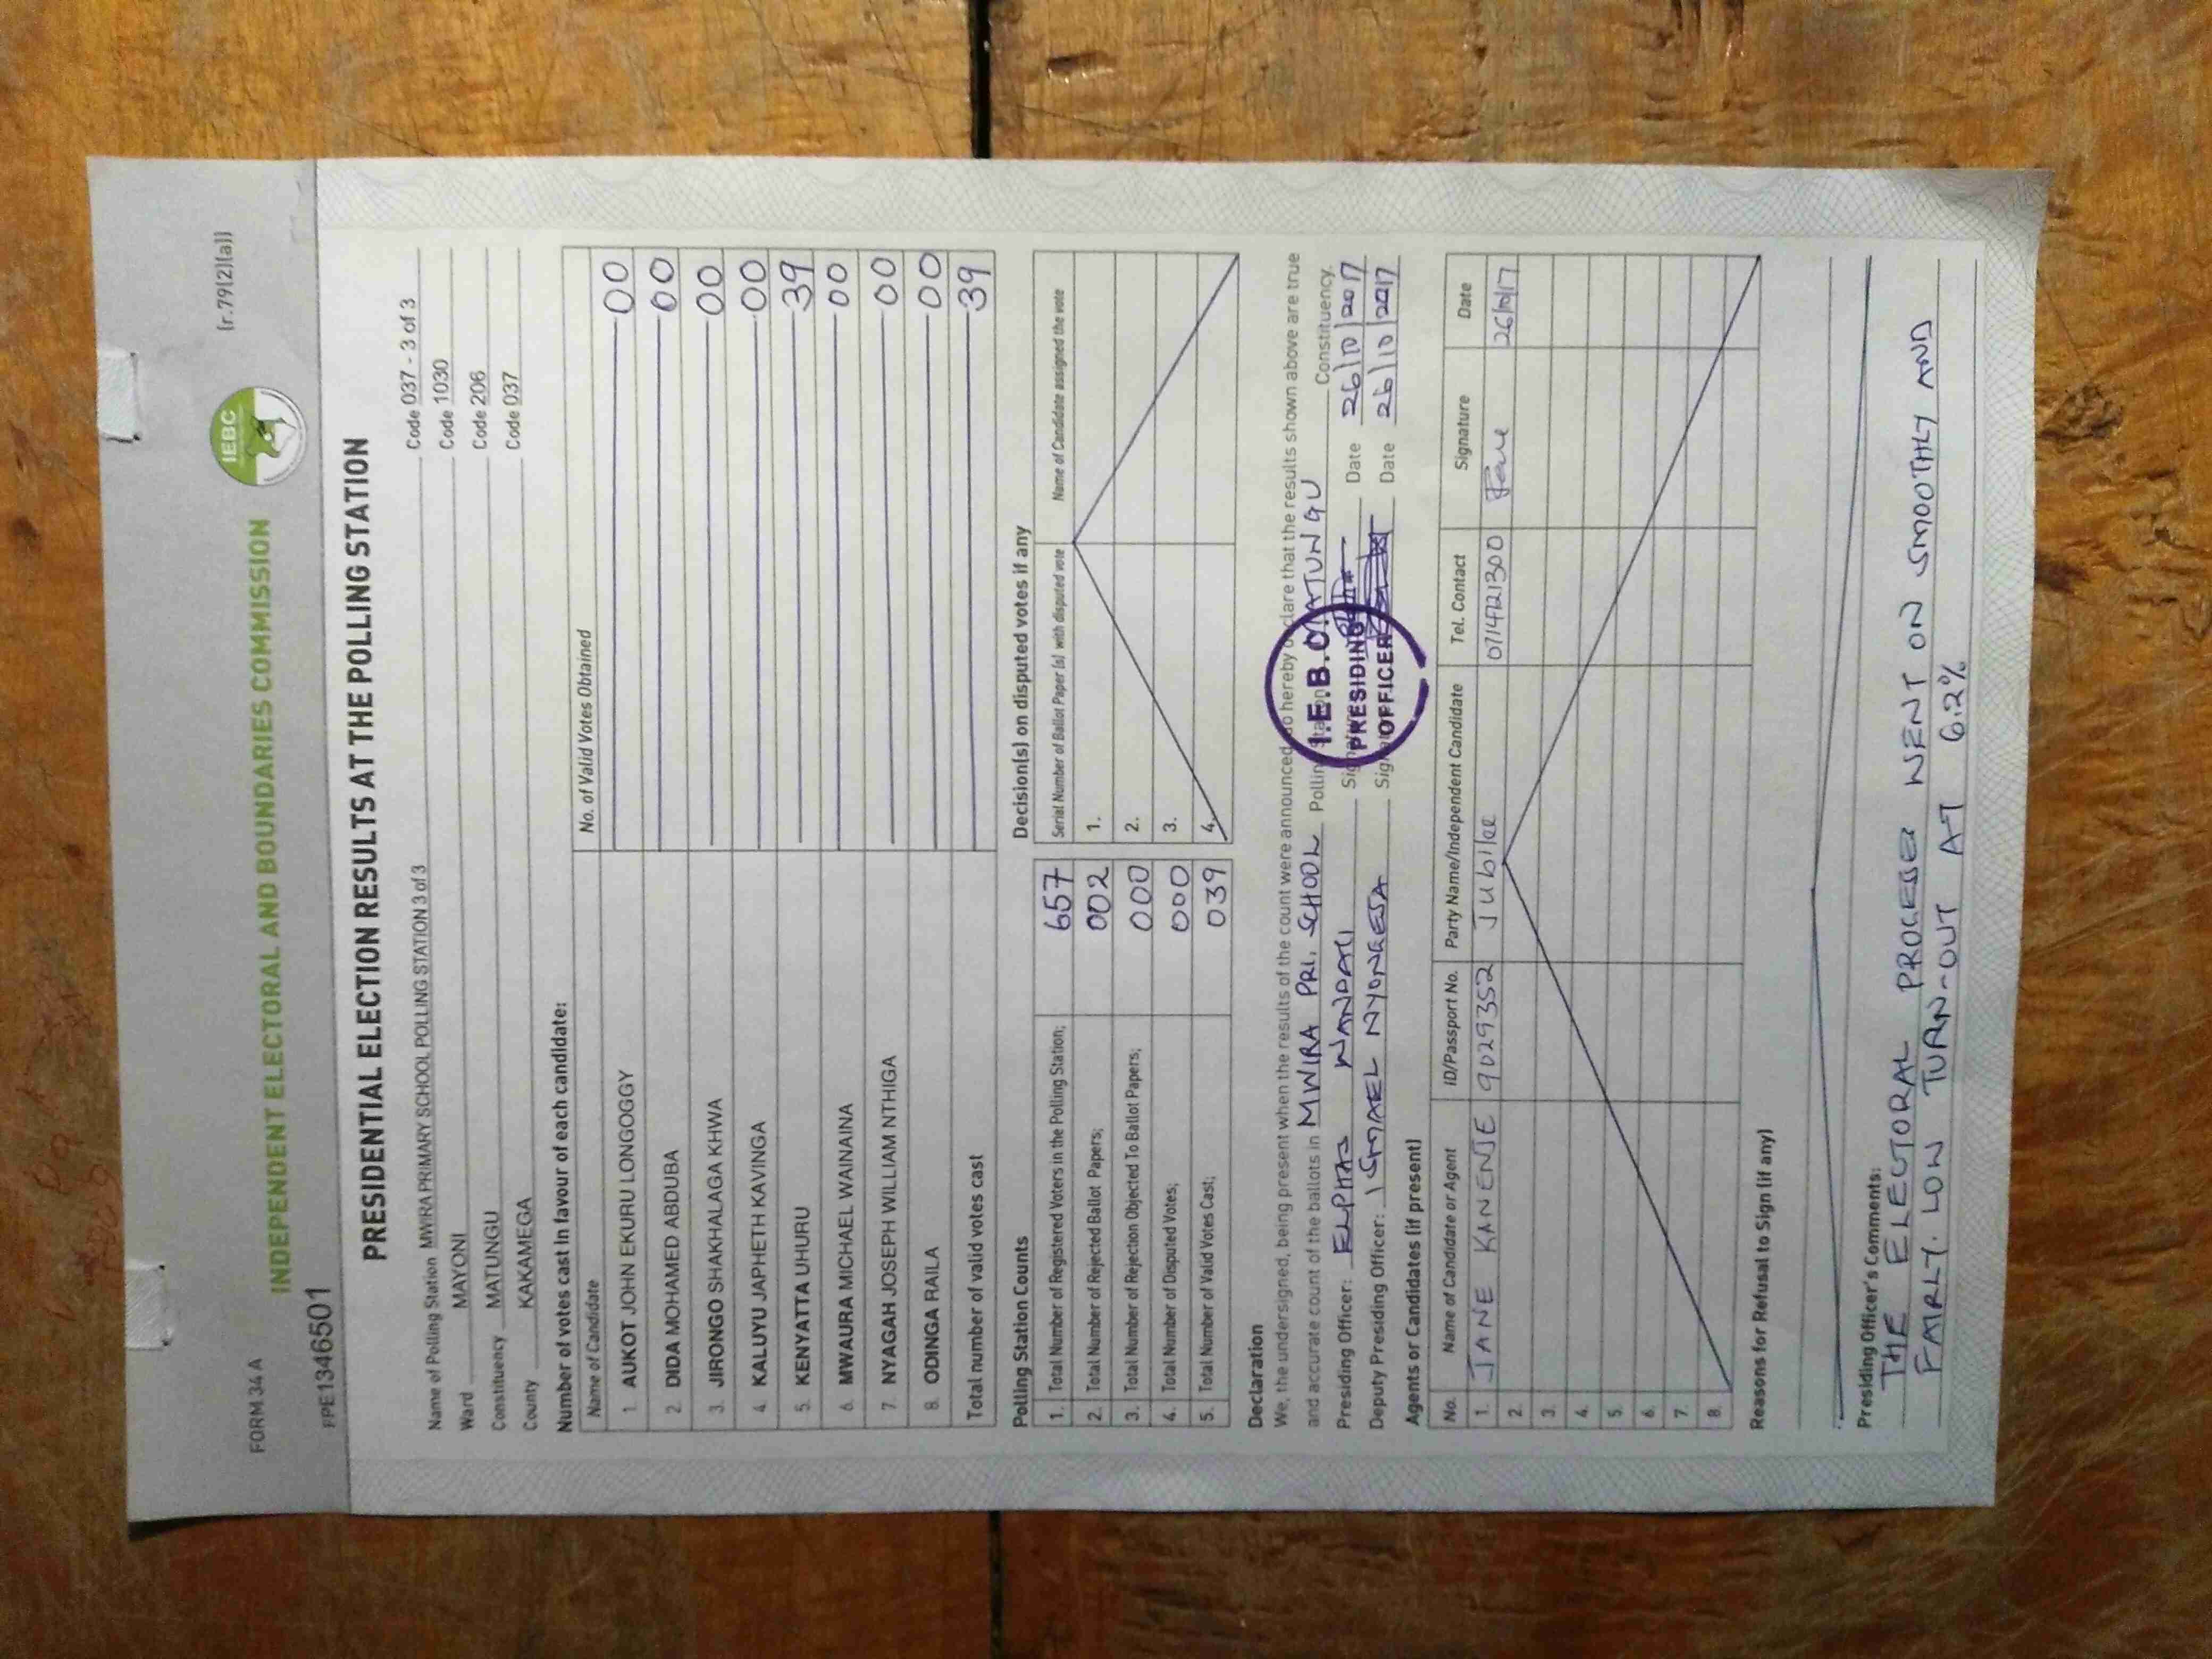 FORM 34 A
[r.79(2)(a)]
IEBC
INDEPENDENT ELECTORAL AND BOUNDARIES COMMISSION
PPE1346501
PRESIDENTIAL ELECTION RESULTS AT THE POLLING STATION
Name of Polling Station MWIRA PRIMARY SCHOOL POLLING STATION 3 of 3 Code 037 - 3 of 3
Ward MAYONI Code 1030
Constituency MATUNGU Code 206
County KAKAMEGA Code 037
Number of votes cast in favour of each candidate:
Name of Candidate No. of Valid Votes Obtained
1. AUKOT JOHN EKURU LONGOGGY 00
2. DIDA MOHAMED ABDUBA 00
3. JIRONGO SHAKHALAGA KHWA 00
4. KALUYU JAPHETH KAVINGA 00
5. KENYATTA UHURU 39
6. MWAURA MICHAEL WAINAINA 00
7. NYAGAH JOSEPH WILLIAM NTHIGA 00
8. ODINGA RAILA 00
Total number of valid votes cast 39
Polling Station Counts
1. Total Number of Registered Voters in the Polling Station; 657
2. Total Number of Rejected Ballot Papers; 002
3. Total Number of Rejection Objected To Ballot Papers; 000
4. Total Number of Disputed Votes; 000
5. Total Number of Valid Votes Cast; 039
Decision(s) on disputed votes if any
Serial Number of Ballot Paper (s) with disputed vote Name of Candidate assigned the vote
1.
2.
3.
4.
Declaration
We, the undersigned, being present when the results of the count were announced, do hereby declare that the results shown above are true
and accurate count of the ballots in MWIRA PRI. SCHOOL Polling Station MATUNGU Constituency.
Presiding Officer: ELPHAS Signature Date 26/10/2017
Deputy Presiding Officer: ISMAEL NYONGESA Signature Date 26/10/2017
I.E.B.C.
PRESIDING
OFFICER
Agents or Candidates (if present)
No. Name of Candidate or Agent ID/Passport No. Party Name/Independent Candidate Tel. Contact Signature Date
1. JANE KANENJE 9029352 Jubilee 0714721300 Jane 26/10/17
2.
3.
4.
5.
6.
7.
8.
Reasons for Refusal to Sign (if any)
Presiding Officer's Comments:
THE ELECTORAL PROCESS WENT ON SMOOTHLY AND
FAIRLY. LOW TURN-OUT AT 6.2%